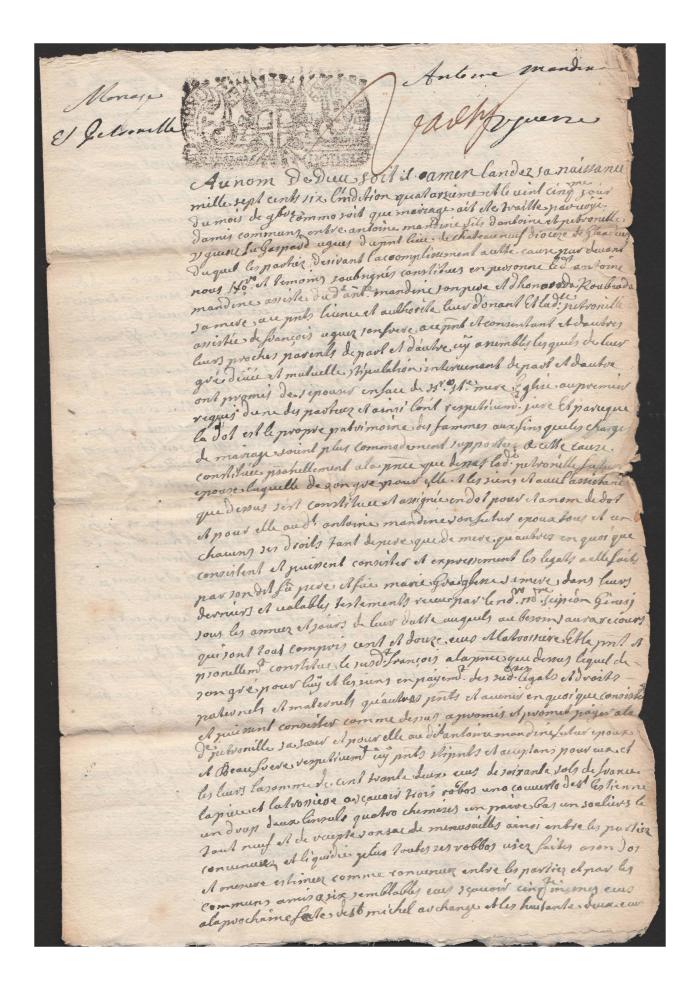 Antoine mandine
Mariage
Et Petronille
uguesse
Au nom De Dieu soit il amen Lan de sa naissance
mille sept cents six L'indition quatorsieme et le vint cinq.me jour
du mois de 9bre comme soit que mariage ait este traitte par voye
damis communs entre antoine mandine fils d'antoine et petronille
uguesse feu Gaspard ugues du pnt lieu de chateauneuf diocese de
duquel les parties desirant lacomplissement a cette cause par devant
nous No.re et temoins soubsignés constitués en personne led. antoine
mandine assisté dud. ant.ne mandine son pere et dhonorade Roubaude
sa mere, au pnts licence et authorité leur donant et lad.te petronille
assistée de françois ugues son frere au pnt et consentant et dautres
leurs proches parents de part et d'autre icy assemblés lesqués de leur
gré deüe et mutuelle stipulation intervenant de part et dautre
ont promis de sepouser en face de N.re S.te mere Eglise au premier
requis dune des parties et ainsi lont respetivem.t juré Et parceque
la dot est le propre patrimoine des fammes aux fins que les charges
de mariage soint plus commodement supportées a cette cause
constituée personellement a la pnce que dessus lad. petronille future
epouse laquelle de son gré pour elle et les siens et avec l'assistance
que dessus sest constituée et assignée en dot pour et au nom de dot
et pour elle aud.t antoine mandine son futur epoux tous et un
chacuns ses droits tant de pere que de mere qu'autres en quoi que
consistent et puissent consister et expressement les legats a elle faits
par son dit feu pere et feüe marie sa mere dans leurs
derniers et valables testements receus par feu me no.re scipion
sous les annees et jours de leur datte ausquels au besoin aura recours
qui sont tout compris cent et douze ecus et la troussure Et le pnt et
personellem.t constitué le susd.t françois a la pnce que dessus lequel de
son gré pour luy et les siens en payem.t des susd. legats et droits
paternels et maternels qu'autres pnts et avenir en quoi que consistent
et puissent consister comme dessus a promis et promet payer a la
d.te petronille sa sœur et pour elle au dit antoine mandine futur epoux
et Beaufrere respetivem.t icy pnts stipulants et aceptans pour eux et
les leurs la somme de cent trante deux ecus de soixante sols de france
la piece et la trossure asçavoir trois robbos une couverte de st estienne
un drap deux linsuls quatro chemises un paire bas un souliers le
tout neuf et de recepte son sac de menusailles ainsi entre les parties
convenues et liquidée plus toutes ses robbos usées faites a son dos
et mesure estimees comme convenues entre les parties et par les
communs amis a six semblables ecus sçavoir cinq.te mesmes ecus
a la prochaine feste de st michel archange et les huitante deux ecus